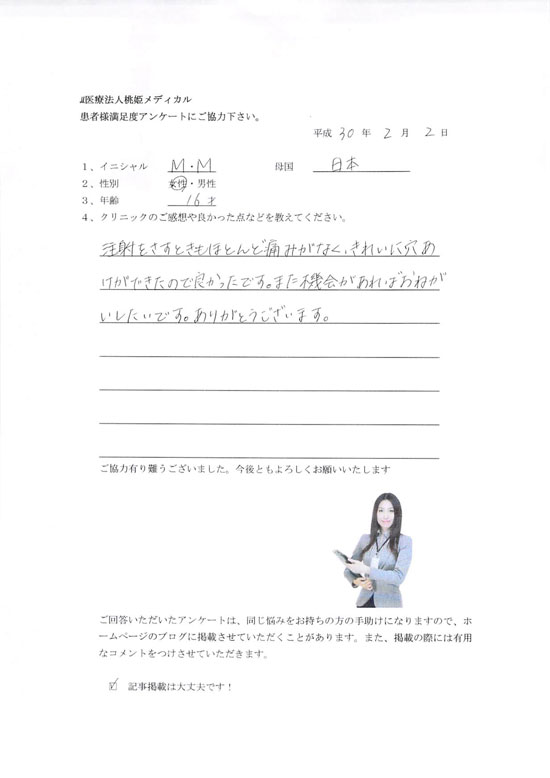 医療法人桃姫メディカル
患者様満足度アンケートにご協力下さい。
平成 30 年 2 月 2 日
1、イニシャル M・M 母国 日本
2、性別 女性・男性
3、年齢 16才
4、クリニックのご感想や良かった点などを教えてください。
注射をさすときもほとんど痛みがなく、きれいに穴あ
けができたので良かったです。また機会があればおねが
いしたいです。ありがとうございます。
ご協力有り難うございました。今後ともよろしくお願いいたします
ご回答いただいたアンケートは、同じ悩みをお持ちの方の手助けになりますので、ホ
ームページのブログに掲載させていただくことがあります。また、掲載の際には有用
なコメントをつけさせていただきます。
☑ 記事掲載は大丈夫です！